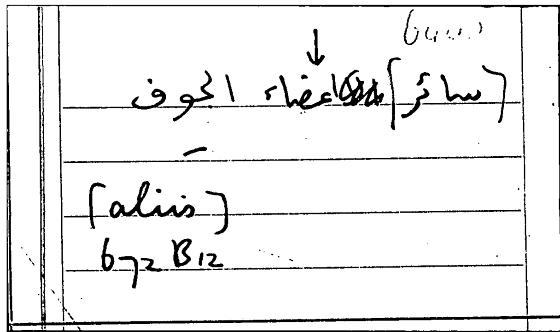 [سائر] اعضاء الجوف
[aliis]
672 B12